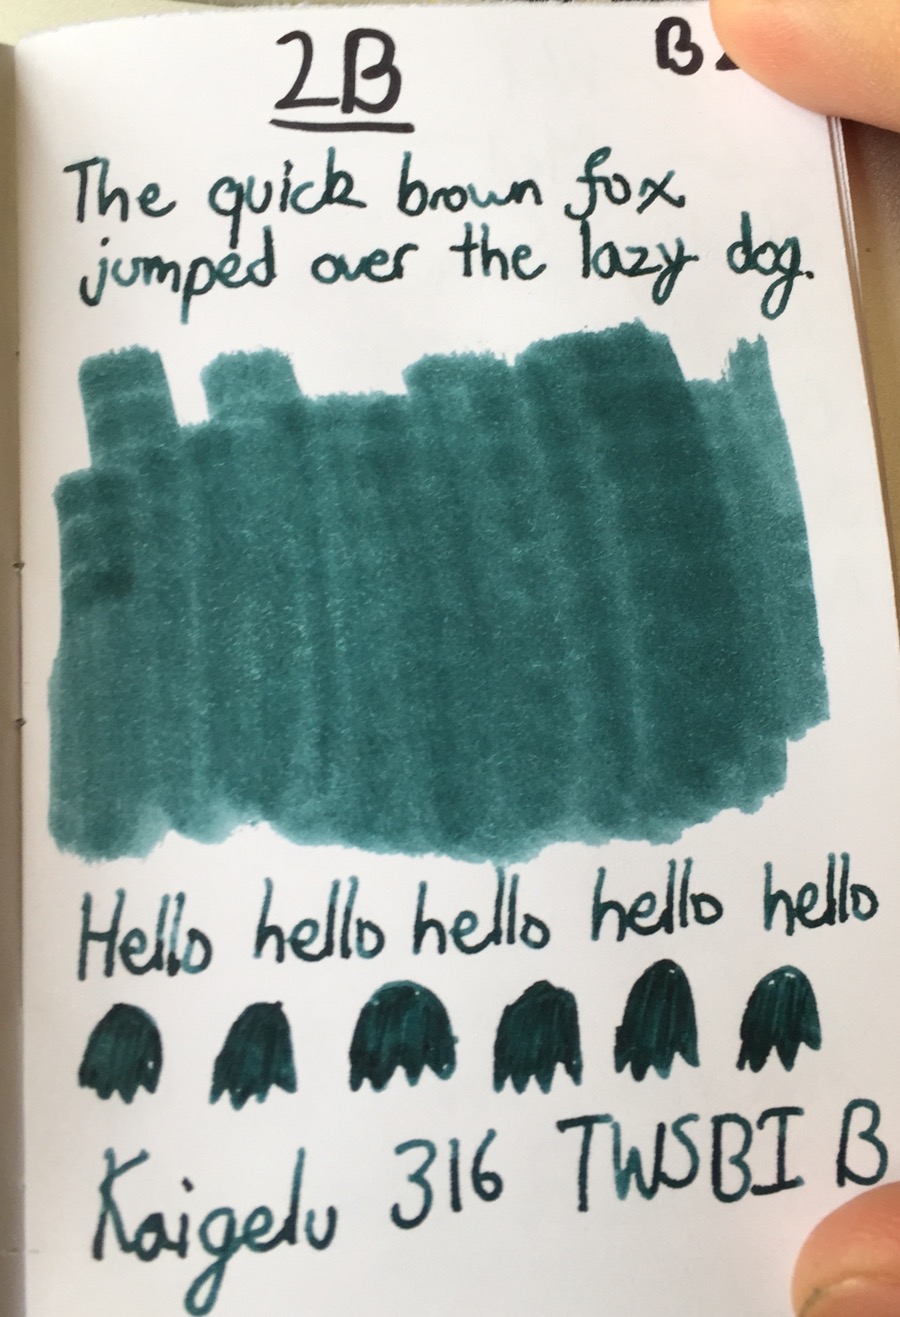 2B
The quick brown fox
jumped over the lazy dog.
Hello hello hello hello hello
Kaigelu 316 TWSBI B